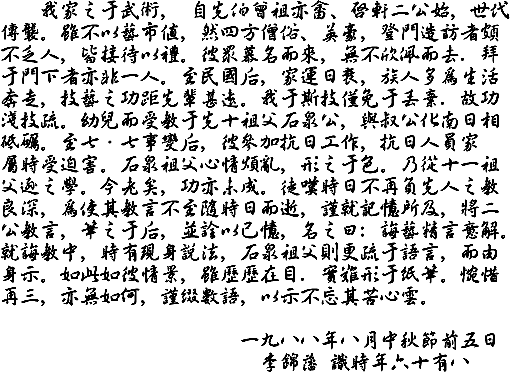 我家之于武術，自先伯曾祖亦畬、啓軒二公始，世代
傳襲。雖不以藝市值，然四方僧俗、英豪，登門造訪者頗
不乏人，皆接待以禮。彼眾慕名而來，無不欣佩而去。拜
于門下者亦非一人。至民國后，家運日衰，族人多為生活
奔走，技藝之功距先輩甚遠。我于斯技僅免于丟棄，故功
淺技疏。幼兒而受教于先十祖父石泉公，與叔公化南日相
砥礪。至七·七事變后，彼參加抗日工作，抗日人員家
屬時受迫害。石泉祖父心情煩亂，形之于色。乃從十一祖
父遜之學。今老矣，功亦未成。徒嘆時日不再負先人之教
良深，為使其教言不至隨時日而逝，謹就記憶所及，將二
公教言，筆之于后，並詮以己憶，名之曰：誨藝精言意解。
就誨教中，時有現身說法，石泉祖父則更疏于語言，而由
身示。如此如彼情景，雖歷歷在目，實難形于紙筆。惋惜
再三，亦無如何，謹綴數語，以示不忘其苦心雲。
一九八八年八月中秋節前五日
李錦藩 識時年六十有八